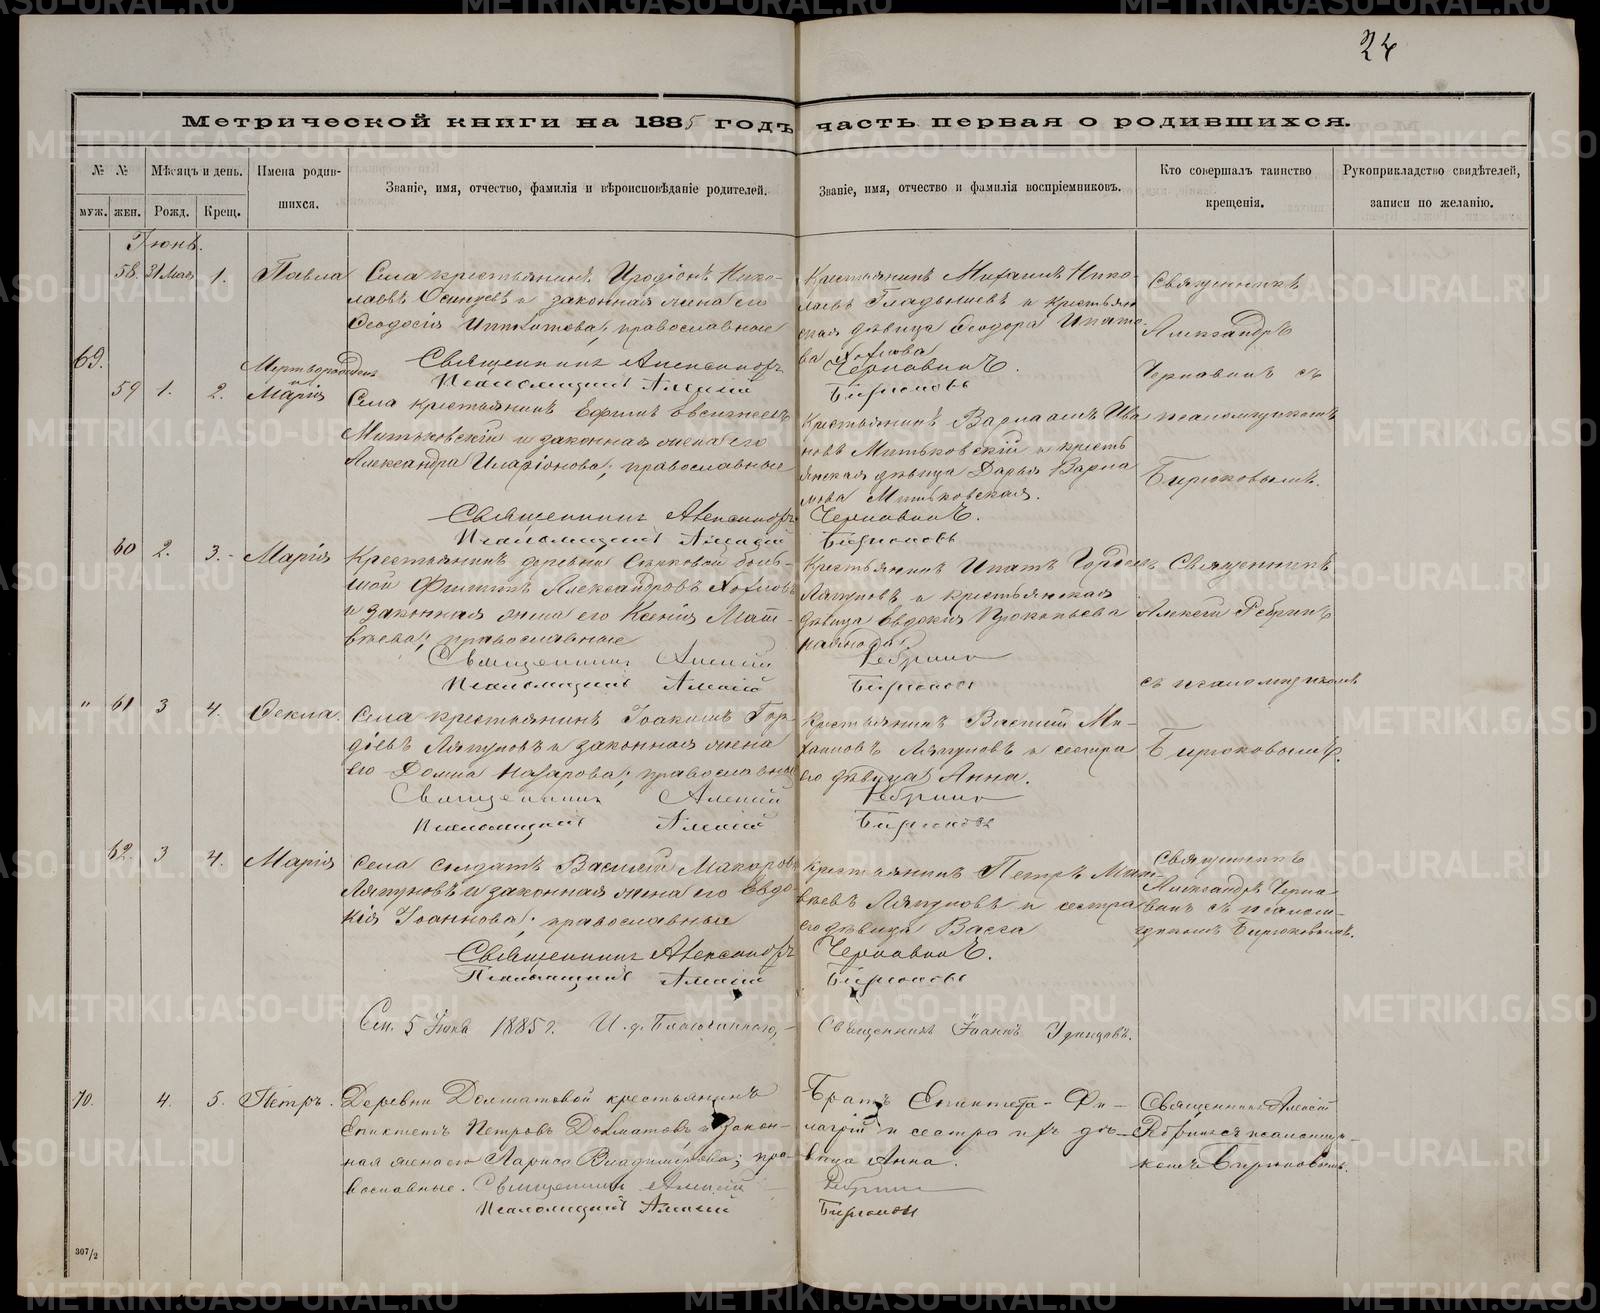 24
Метрической книги на 1885 годъ часть первая о родившихся.
№ № Мѣсяцъ и день. Имена родив-
шихся.
муж. жен. Рожд. Крещ.
Званіе, имя, отчество, фамилія и вѣроисповѣданіе родителей.
Званіе, имя, отчество и фамилія воспріемниковъ.
Кто совершалъ таинство
крещенія.
Рукоприкладство свидѣтелей,
записи по желанію.
Іюнь.
58. 31 Мая 1. Павла
Села крестьянинъ Иродіонъ Нико-
лаевъ и законная жена его
Ѳеодосія православные
Священникъ Александръ
Псаломщикъ Алексій
Крестьянинъ Михаилъ Нико-
лаевъ Гладышевъ и крестьян
ская дѣвица Ѳеодора Ипато-
ва
Чернавинъ.
Бирюковъ
Священникъ
Александръ
Чернавинъ съ
псаломщикомъ
Бирюковымъ.
69.
Мертворожден
и
59 1. 2. Марія
Села крестьянинъ Ефимъ Евсигнеевъ
Митьковскій и законная жена его
Александра Иларіонова; православные
Священникъ Александръ
Псаломщикъ Алексій
Крестьянинъ Варлаамъ Ива
новъ Митьковскій и кресть
янская дѣвица Дарья Варла
мова Митьковская.
Чернавинъ.
Бирюковъ
60 2. 3. Марія
Крестьянинъ деревни боль-
шой Филиппъ Александровъ
и законная жена его Ксенія Мат-
вѣева; православные
Священникъ Алексій
Псаломщикъ Алексій
Крестьянинъ Ипатъ Гордеевъ
Ляпуновъ и крестьянская
дѣвица Евдокія Прокопьева
Ребринъ
Бирюковъ
Священникъ
Алексій Ребринъ
съ псаломщикомъ
Бирюковымъ.
" 61 3 4. Ѳекла.
Села крестьянинъ Іоакимъ Гор-
дѣевъ Ляпуновъ и законная жена
его Домна Назарова; православные
Священникъ Алексій
Псаломщикъ Алексій
Крестьянинъ Василій Ми-
хаиловъ Ляпуновъ и сестра
его дѣвица Анна.
Ребринъ
Бирюковъ
62. 3 4. Марія
Села солдатъ Василій Макаровъ
Ляпуновъ и законная жена его Евдо-
кія Іоаннова; православные
Священникъ Александръ
Псаломщикъ Алексій
Крестьянинъ Петръ Мат-
вѣевъ Ляпуновъ и сестра
его дѣвица Васса
Чернавинъ.
Бирюковъ
Священникъ
Александръ Черна-
винъ съ псалом-
щикомъ Бирюковымъ.
5 Іюня 1885 г. И. д. Благочиннаго,
Священникъ Іоаннъ
70. 4. 5. Петръ.
Деревни Долматовой крестьянинъ
Епиктетъ Петровъ Долматовъ и закон-
ная жена его Лариса Владимірова; пра-
вославные. Священникъ Алексій
Псаломщикъ Алексій
Братъ Епиктета - Фи-
лагрій и сестра дѣ-
вица Анна.
Ребринъ
Бирюковъ
Священникъ Алексій
Ребринъ съ псаломщи-
комъ Бирюковымъ.
307/2
METRIKI.GASO-URAL.RU